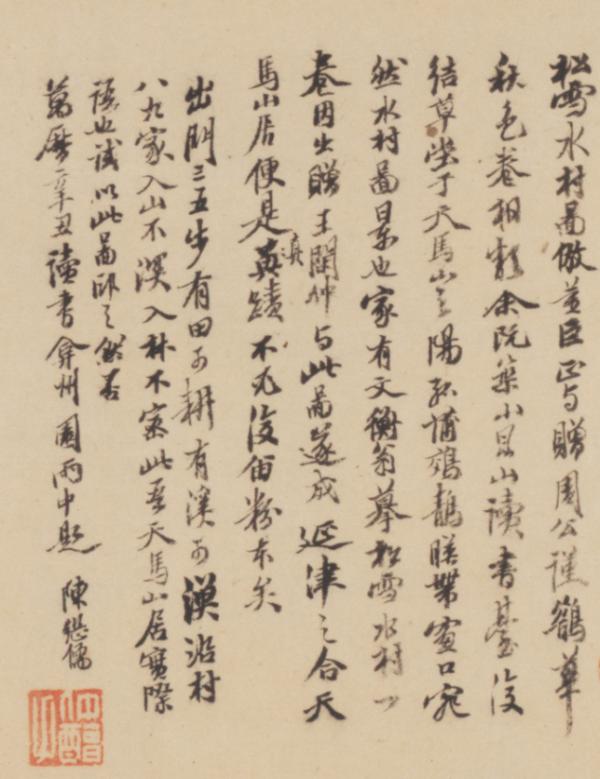 松雪水村圖倣董臣正與贈周公謹鵲華
秋色卷相類余既築小昆山讀書臺後
結草堂于天馬山之陽孤蒲鵁鶄映帶窗口宛
然水村圖景也家有文衡翁摹松雪水村一
卷因出贈王閏仲與此圖遂成延津之合天
馬山居便是真蹟不九後留粉本矣
出門三五步有田可耕有溪可漁沿村
八九家入山不深入林不密此吾天馬山居實際
語也試以此圖印之然否
萬曆辛丑讀書弇州園雨中題 陳繼儒